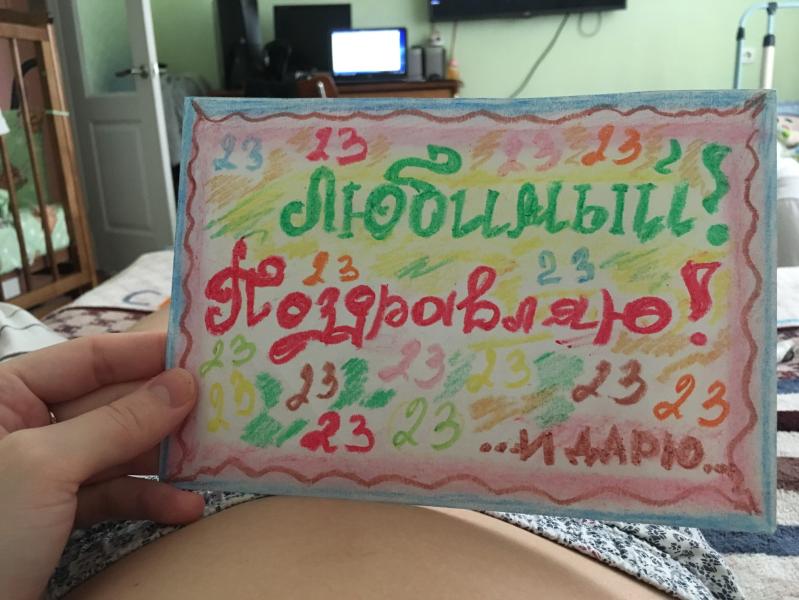 23 23 23 23
Любимый!
23 23
Поздравляю!
23 23 23 23 23
23 23 23 23
...И ДАРЮ...